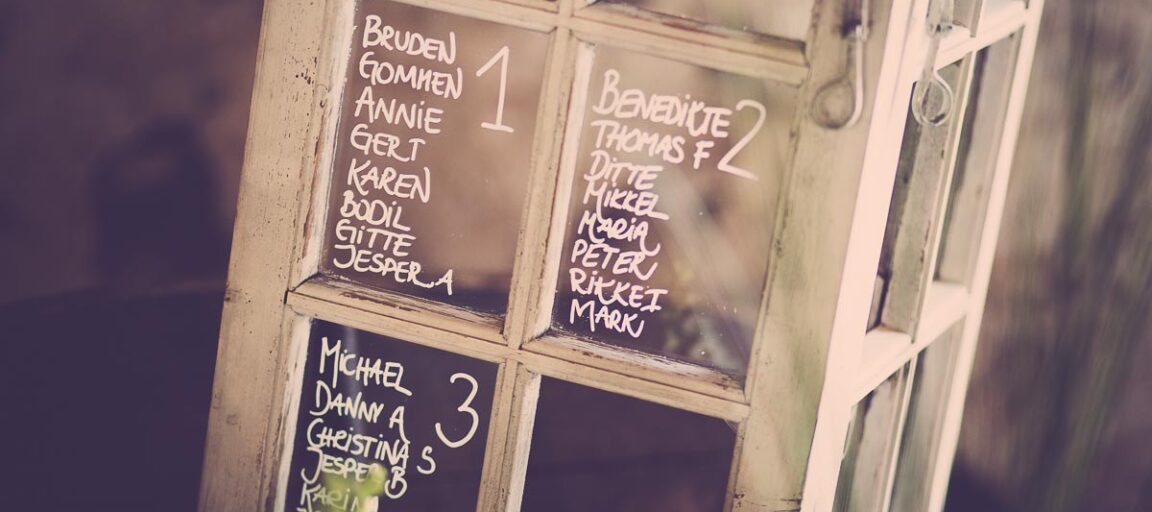 BRUDEN
GOMMEN
ANNIE
GERT
KAREN
BODIL
GITTE
JESPER A
1
BENEDIKTE
THOMAS F
DITTE
MIKKEL
MARIA
PETER
RIKKE I
MARK
2
MICHAEL
DANNY A
CHRISTINA S
JESPER B
3